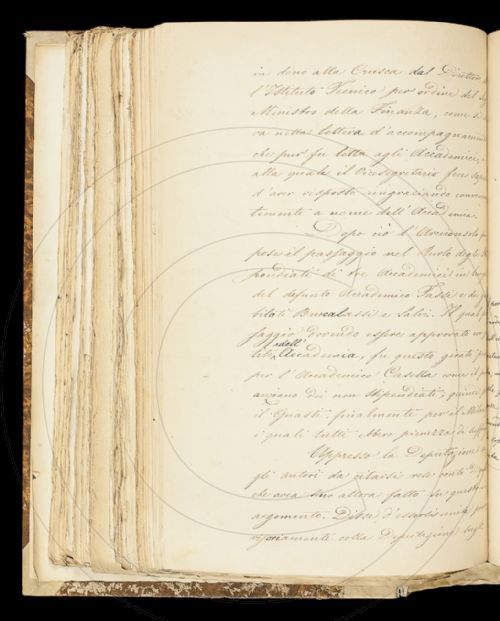 in dono alla Crusca dal Direttore
l'Istituto Tecnico per ordine del
Ministro della Finanza, come si
va nella lettera d'accompagnamen
che pur fu letta agli Accademici,
alla quale il Vicesegretario fece sapere
d'aver risposto ringraziando conven
temente a nome dell'Accademia.
Dopo ciò l'Arciconsolo
pose il passaggio nel Ruolo degli
pendiati di tre Accademici in luogo
del defunto Accademico Tassi e de'
bilati Buscalassi e Salvi. Il qual
saggio dovendo essere approvato
dell'
Accademia, fu questo
per l'Accademico Casella come il
anziano dei non stipendiati, quindi
il Guasti, finalmente per il
i quali tutti ebbero pienezza di
Appresso la Deputazione
gli autori da citarsi rese conto di
che avea fino allora fatto su questo
argomento. Disse d'essersi
colla Deputazione